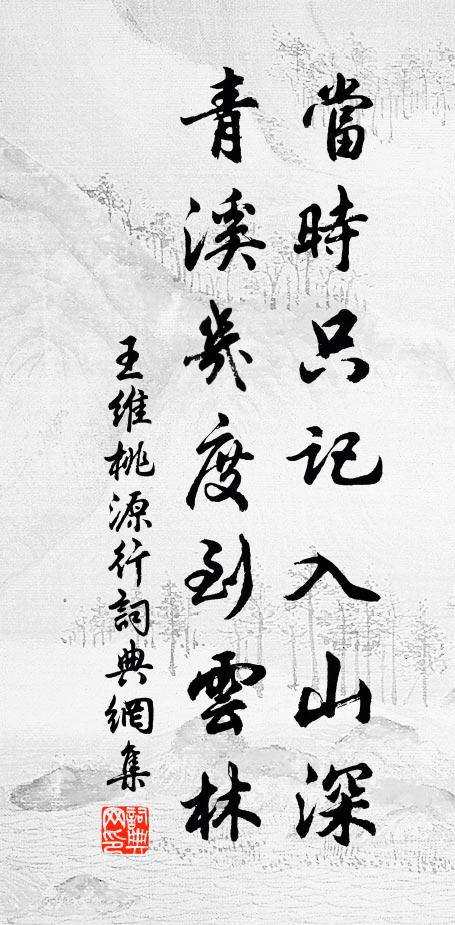 當時只記入山深
青溪幾度到雲林
王維桃源行詞典網集
詞典网印